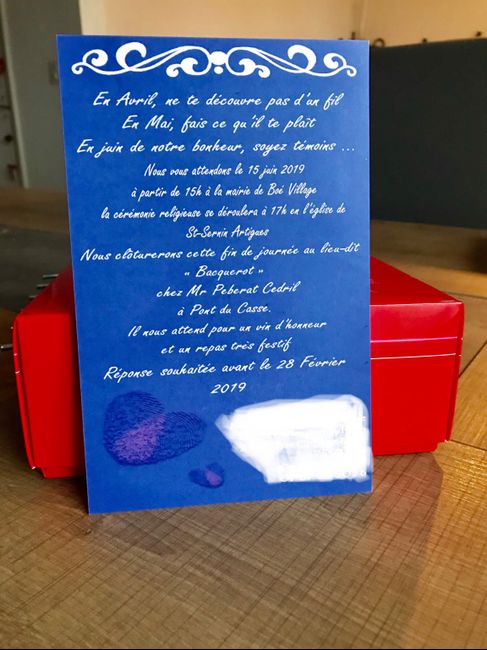 En Avril, ne te découvre pas d'un fil
En Mai, fais ce qu'il te plaît
En juin de notre bonheur, soyez témoins ...
Nous vous attendons le 15 juin 2019
à partir de 15h à la mairie de Boé Village
la cérémonie religieuse se déroulera à 17h en l'église de
St-Sernin Artigues
Nous clôturerons cette fin de journée au lieu-dit
« Bacquerot »
chez Mr Peberat Cedril
à Pont du Casse.
Il nous attend pour un vin d'honneur
et un repas trés festif
Réponse souhaitée avant le 28 Février
2019